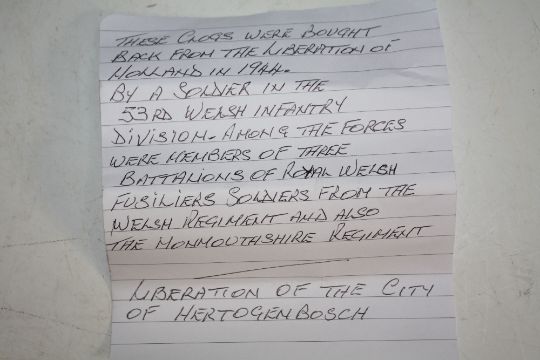 THESE CLOGS WERE BOUGHT
BACK FROM THE LIBERATION OF
HOLLAND IN 1944.
BY A SOLDIER IN THE
53RD WELSH INFANTRY
DIVISION. AMONG THE FORCES
WERE MEMBERS OF THREE
BATTALIONS OF ROYAL WELSH
FUSILIERS SOLDIERS FROM THE
WELSH REGIMENT AND ALSO
THE MONMOUTHSHIRE REGIMENT
LIBERATION OF THE CITY
OF HERTOGENBOSCH